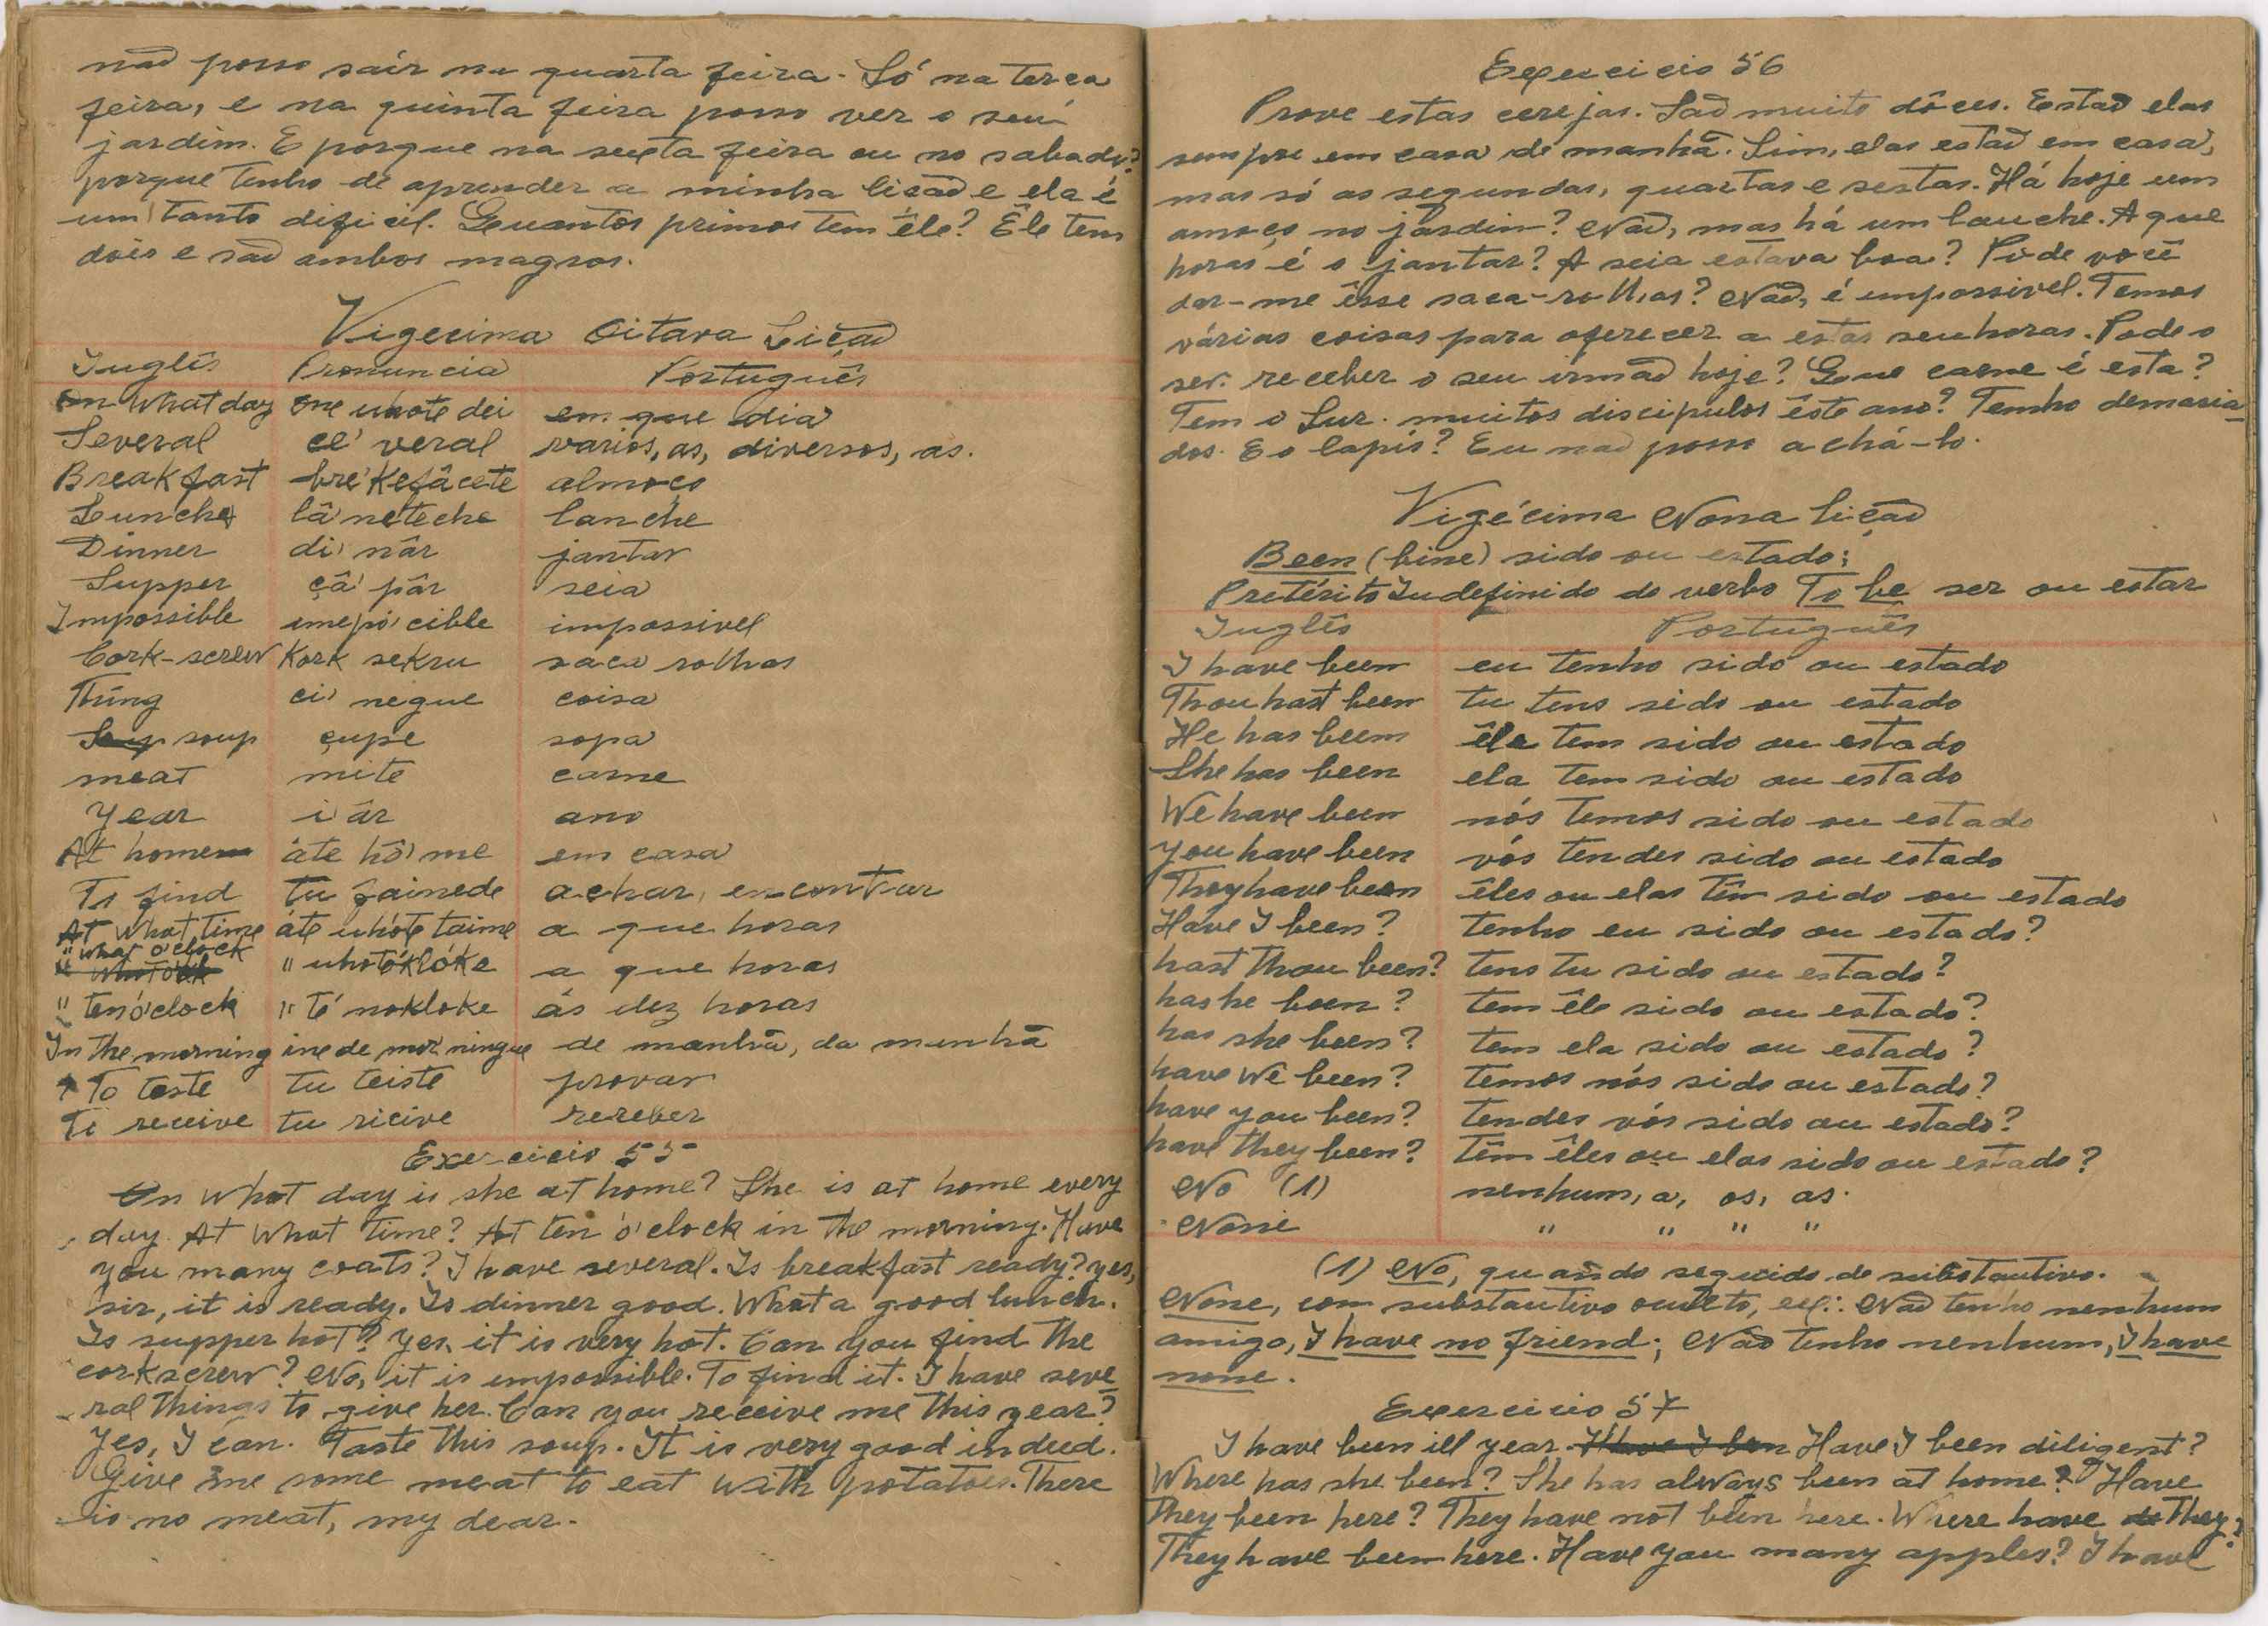 não posso saír na quarta feira. Só na terça
feira, e na quinta feira posso ver o seu
jardim. E porque na sexta feira ou no sabado?
porque tenho de aprender a minha lição e ela é
um tanto dificil. Quantos primos tem êle? Êle tem
dois e são ambos magros.
Vigecima Oitava Lição
Inglês Pronuncia Português
On What day one uhote dei em que dia
Several cé veral varios, as, diversos, as.
Breakfast bré kefâcete almoço
Lunche lâ neteche lanche
Dinner di nâr jantar
Supper çâ pâr seia
Impossible imepó cible impossivel
Cork-screw Kork sekru saca rolhas
Thing ci negue coisa
soup çupe sopa
meat mite carne
year i âr ano
At home áte hô me em casa
To find tu fainede achar, encontrar
At What time áte uhóte taime a que horas
" what o'clock " uhotóklóke a que horas
" ten o'clock " té nokloke ás dez horas
In the morning ine de mor ningue de manhã, da manhã
To teste tu teiste provar
To receive tu ricive receber
Exercicio 55
On what day is she at home? She is at home every
day. At What time? At ten o'clock in the morning. Have
you many coats? I have several. Is breakfast ready? yes,
sir, it is ready. Is dinner good. What a good lunch.
Is supper hot? Yes, it is very hot. Can you find the
corkscrew? No, it is impossible. To find it. I have seve
ral things to give her. Can you receive me this year?
Yes, I can. Taste this soup. It is very good indeed.
Give me some meat to eat with potatoes. There
is no meat, my dear.
Exercicio 56
Prove estas cerejas. São muito dôces. Estão elas
sempre em casa de manhã. Sim, elas estão em casa,
mas só as segundas, quartas e sestas. Há hoje um
amoço no jardim? Não, mas há um lauche. A que
horas é o jantar? A seia estava boa? Pode você
dar-me êsse saca-rolhas? Não, é impossivel. Temos
várias coisas para oferecer a estas senhoras. Pode o
snr. receber o seu irmão hoje? Que carne é esta?
Tem o Snr. muitos discipulos êste ano? Tenho demasia
dos. E o lapis? Eu não posso achá-lo.
Vigécima Nona lição
Been (bine) sido ou estado:
Pretérito Indefinido do verbo To be ser ou estar
Inglês Português
I have been eu tenho sido ou estado
Thou hast been tu tens sido ou estado
He has been êle tem sido ou estado
She has been ela tem sido ou estado
We have been nós temos sido ou estado
you have been vós tendes sido ou estado
They have been êles ou elas têm sido ou estado
Have I been? tenho eu sido ou estado?
hast thou been? tens tu sido ou estado?
has he been? tem êle sido ou estado?
has she been? tem ela sido ou estado?
have We been? temos nós sido ou estado?
have you been? tendes vós sido ou estado?
have they been? têm êles ou elas sido ou estado?
No (1) nenhum, a, os, as.
None " " " "
(1) No, quando seguido de substantivo.
None, com substantivo oculto, ex: Não tenho nenhum
amigo, I have no friend; Não tenho nenhum, I have
none.
Exercicio 57
I have been ill year. Have I been diligent?
Where has she been? She has always been at home? Have
They been here? They have not been here. Where have they?
They have been here. Have you many apples? I have